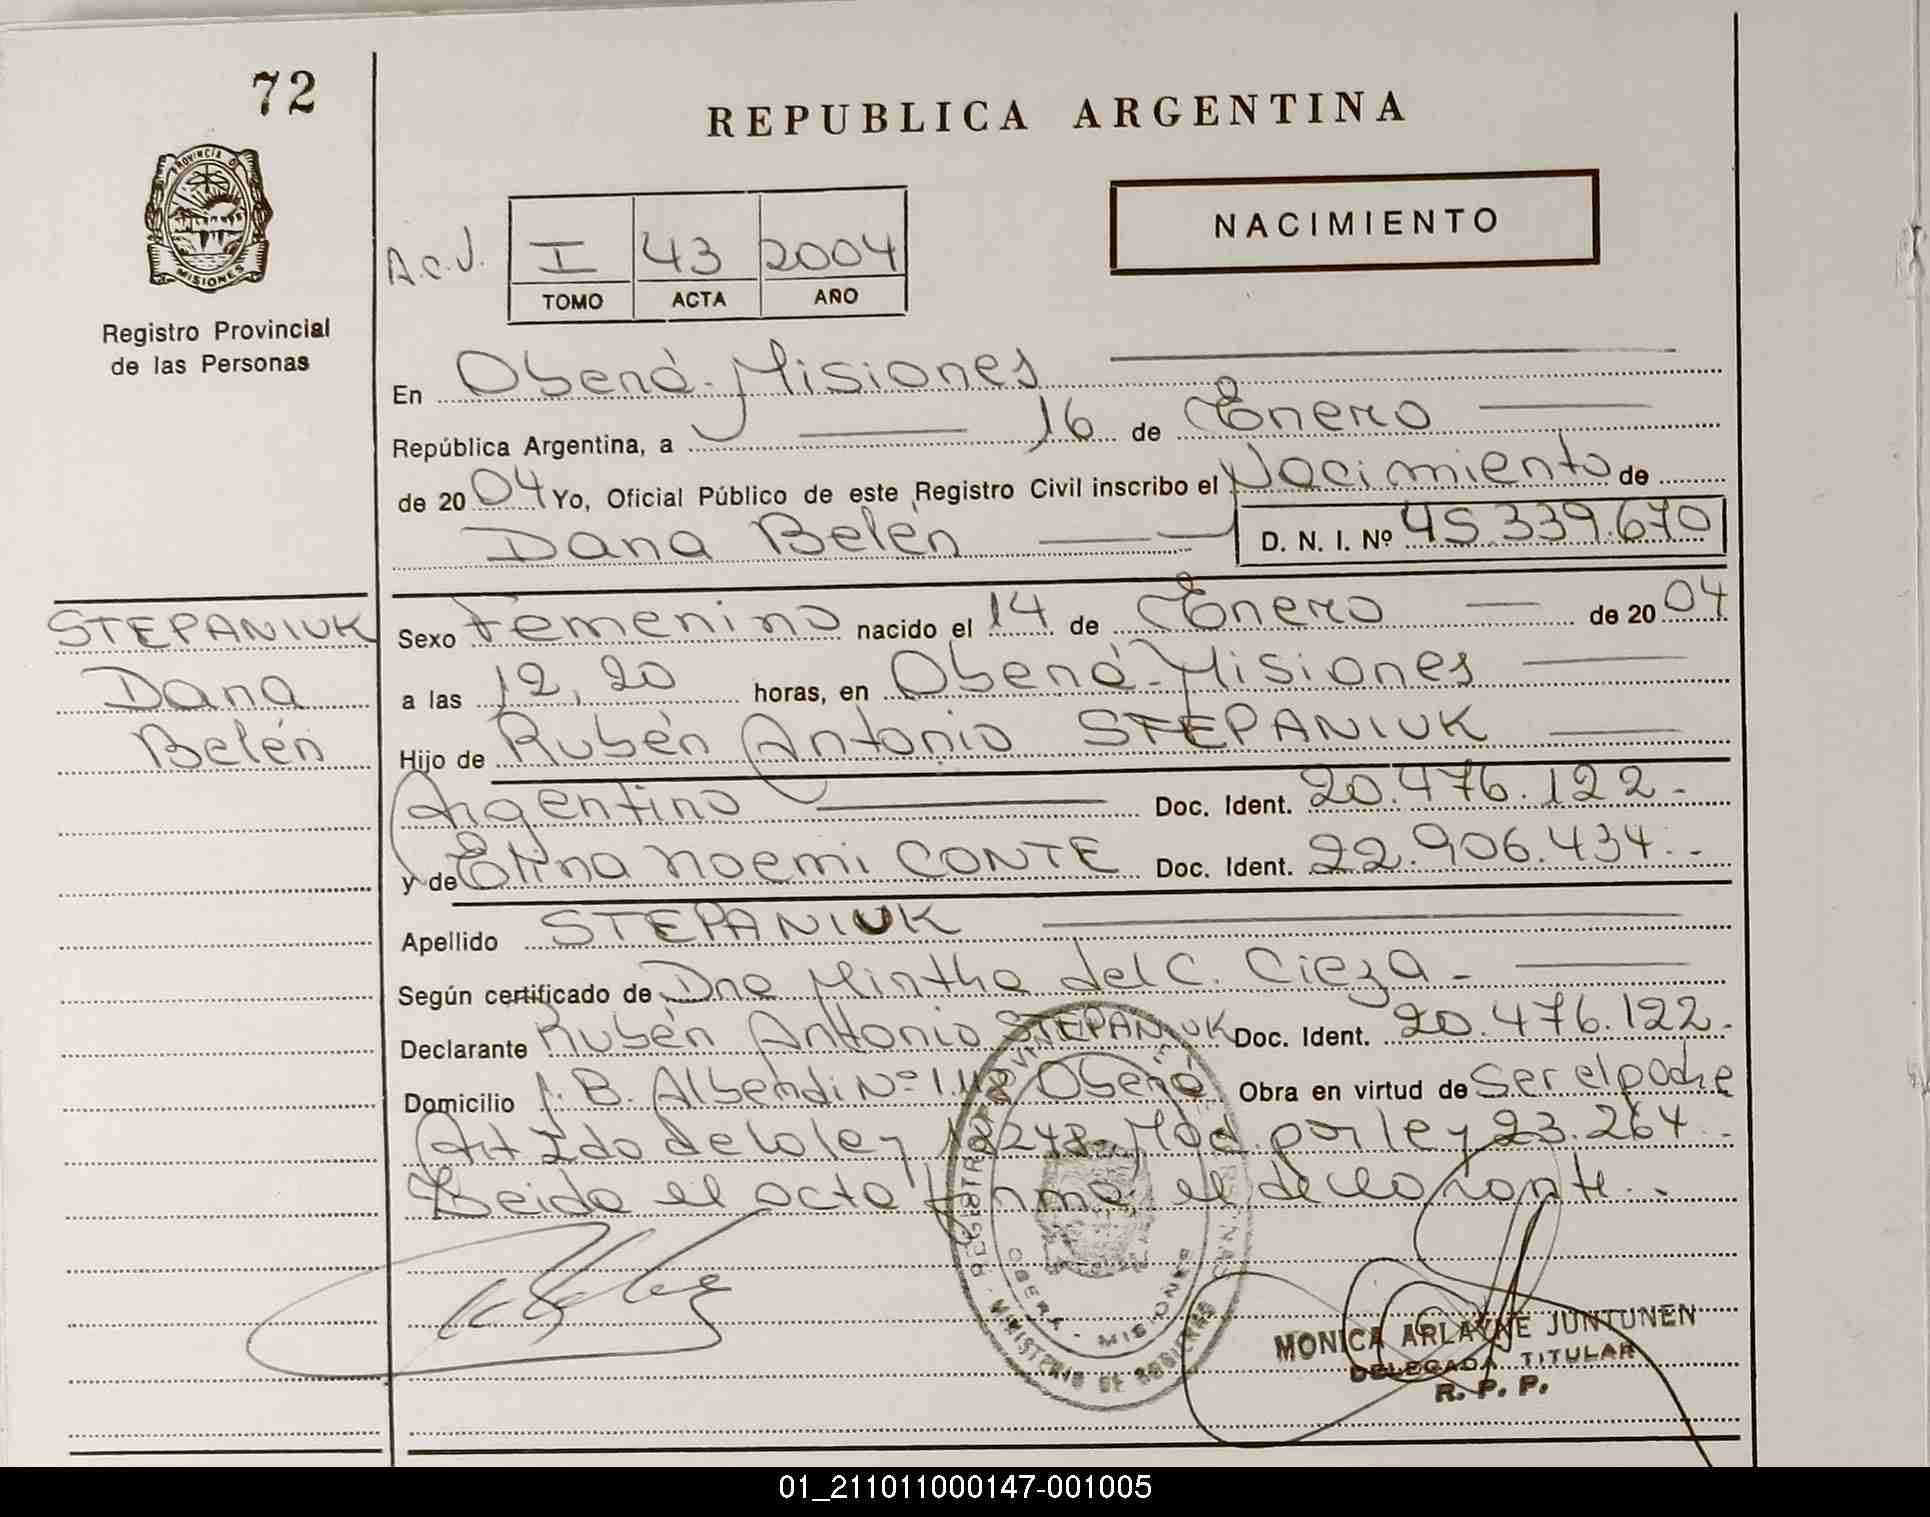 72
REPUBLICA ARGENTINA
PROVINCIA D
MISIONES
Registro Provincial
de las Personas
A.C.J.
I 43 2004
TOMO ACTA AÑO
NACIMIENTO
En Oberá - Misiones
República Argentina, a 16 de Enero
de 2004 Yo, Oficial Público de este Registro Civil inscribo el Nacimiento de
Dana Belén D. N. I. Nº 45.339.670
STEPANIUK
Dana
Belén
Sexo Femenino nacido el 14 de Enero de 2004
a las 12,20 horas, en Oberá - Misiones
Hijo de Rubén Antonio STEPANIUK
Argentino Doc. Ident. 20.476.122.-
y de Elina Noemi CONTE Doc. Ident. 22.906.434.-
Apellido STEPANIUK
Según certificado de Dra Mirtha del C. Cieza -
Declarante Rubén Antonio STEPANIUK Doc. Ident. 20.476.122.-
Domicilio J. B. Alberdi Nº Oberá Obra en virtud de Ser el padre
Art 2do de la ley 18248 - Mod. por ley 23.264.-
Leida el acta firma el declarante.-
OBERA - MISIONES
MINISTERIO DE GOBIERNO
MONICA ARLAYNE JUNTUNEN
DELEGADA TITULAR
R. P. P.
01_211011000147-001005